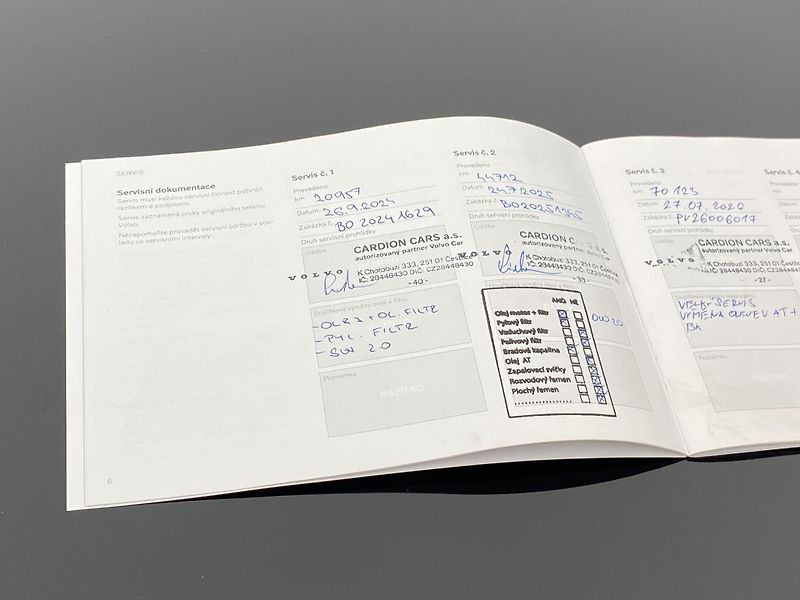 SERVIS
Servisní dokumentace
Servis musí každou servisní činnost potvrdit,
razítkem a podpisem.
Servis zaznamená prvky originálního servisu
Volvo.
Nezapomeňte provádět servisní údržbu v sou-
ladu se servisními intervaly.
6
Servis č. 1
Provedeno
km 20957
Datum 26.9.2024
Zakázka č. BO 2024 1629
Druh servisní prohlídky
Údržba
CARDION CARS a.s.
autorizovaný partner Volvo Car
VOLVO K Chotobuzi 333, 251 01 Čestlice
IČ: 28448430 DIČ: CZ28448430
- 40 -
Doplňkové výměny oleje a filtru
- OLEJ + OL. FILTR
- PYL. FILTR
- SW 2.0
Poznámka
RAZÍTKO
Servis č. 2
Provedeno
km 44712
Datum 24.7.2025
Zakázka č. BO20251345
Druh servisní prohlídky
Údržba
CARDION
autorizovaný partner Volvo Car
VOLVO K Chotobuzi 333, 251 01 Čestlice
IČ: 28448430 DIČ: CZ28448430
ANO NE
Olej motor + filtr
Pylový filtr
Vzduchový filtr
Palivový filtr
Brzdová kapalina
Olej AT
Zapalovací svíčky
Rozvodový řemen
Plochý řemen
0W20
Servis č. 3
Provedeno
km 70 123
Datum 27. 07. 2020
Zakázka č. PV26006017
Druh servisní prohlídky
Údržba
CARDION CARS a.s.
autorizovaný partner Volvo Car
K Chotobuzi 333, 251 01
IČ: 28448430 DIČ: CZ28448430
- 27 -
VELKÝ SERVIS
VÝMĚNA OLEJE V AT +
BK
Servis č. 4
Provedeno
km
Datum
Zakázka